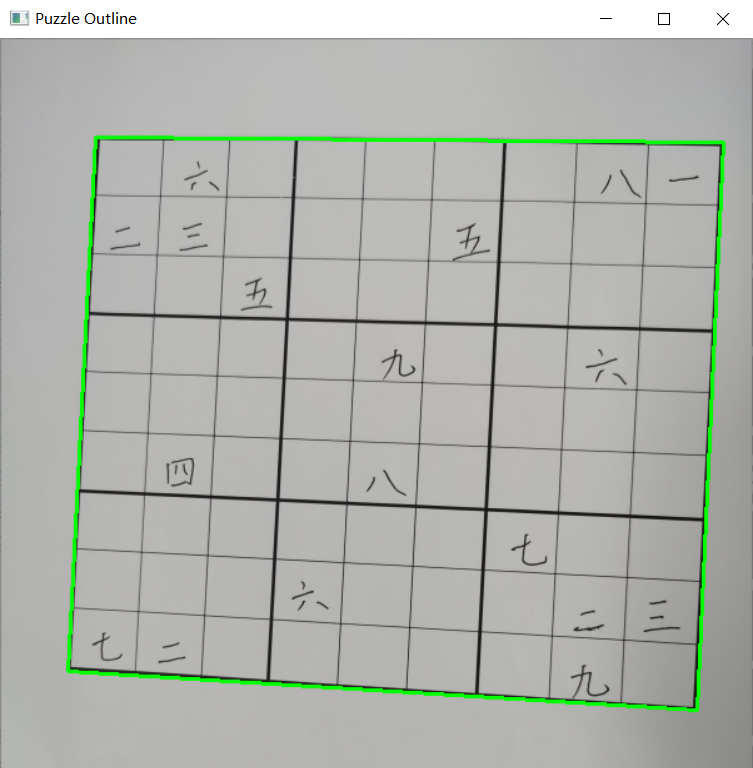 Puzzle Outline
六 八 一
二 三 五
五
九 六
四 八
七
六 二 三
七 二 九